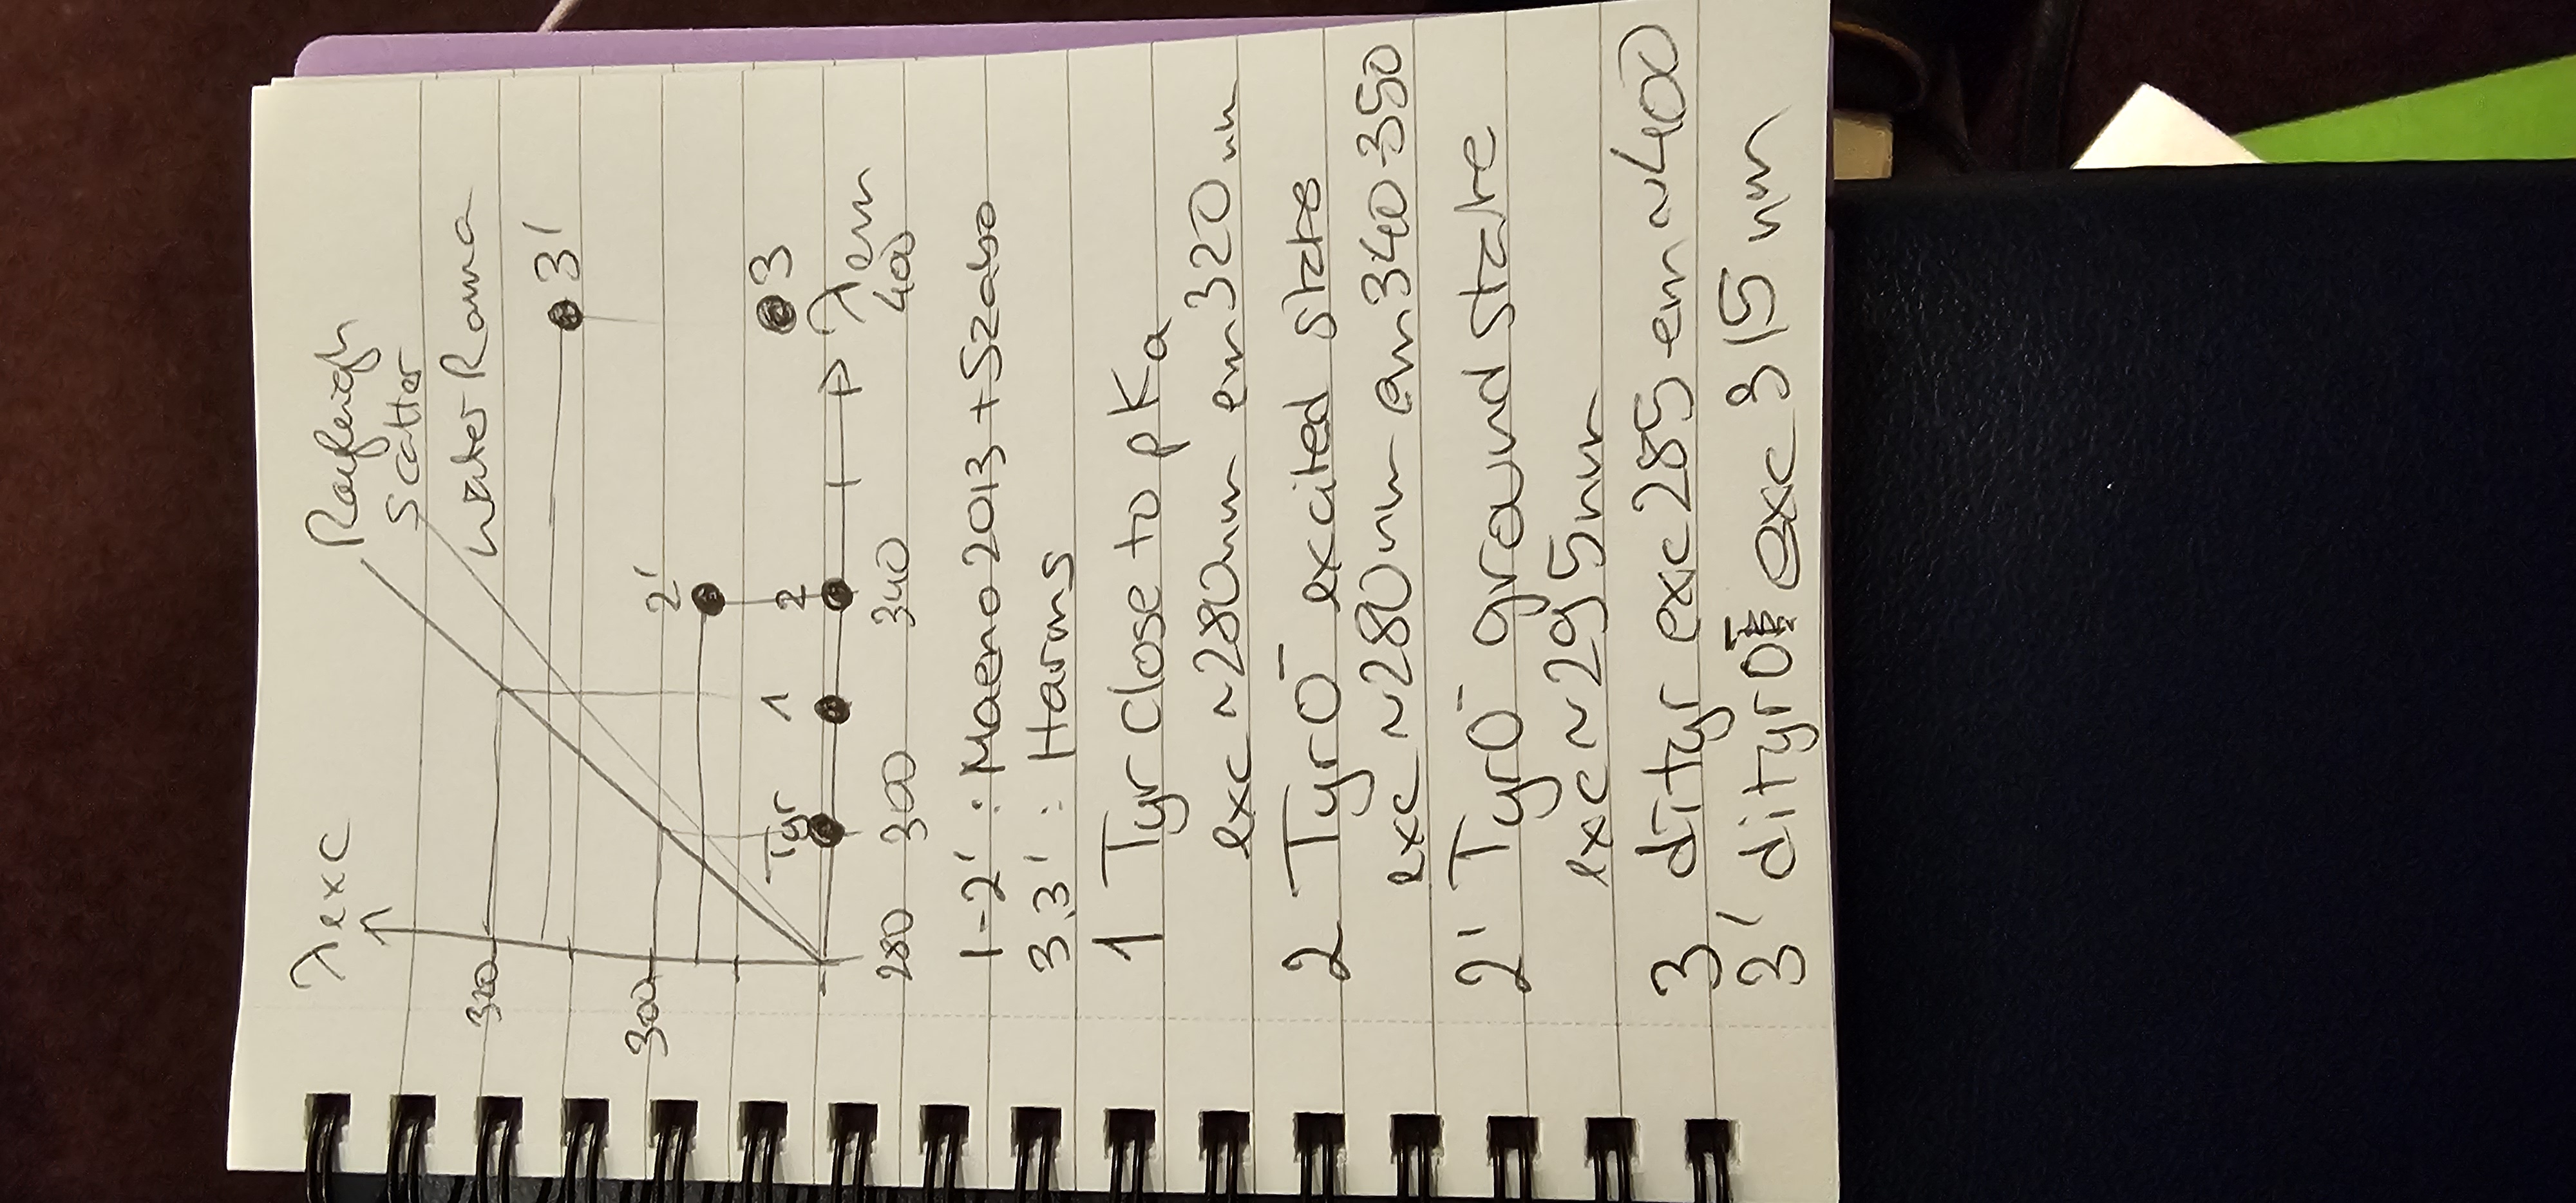 λexc
Rayleigh
Scatter
Water Rama
320
3'
300
2'
Tyr
1
2
3
λem
280 300 340 400
1-2' : Maeno 2013 + Szabo
3,3' : Harms
1 Tyr close to pKa
exc ~280nm em 320 nm
2 TyrO⁻ excited state
exc ~280nm em 340-350
2' TyrO⁻ ground state
exc ~295nm
3 dityr exc 285 em ~400
3' dityrO⁻ exc 315 nm